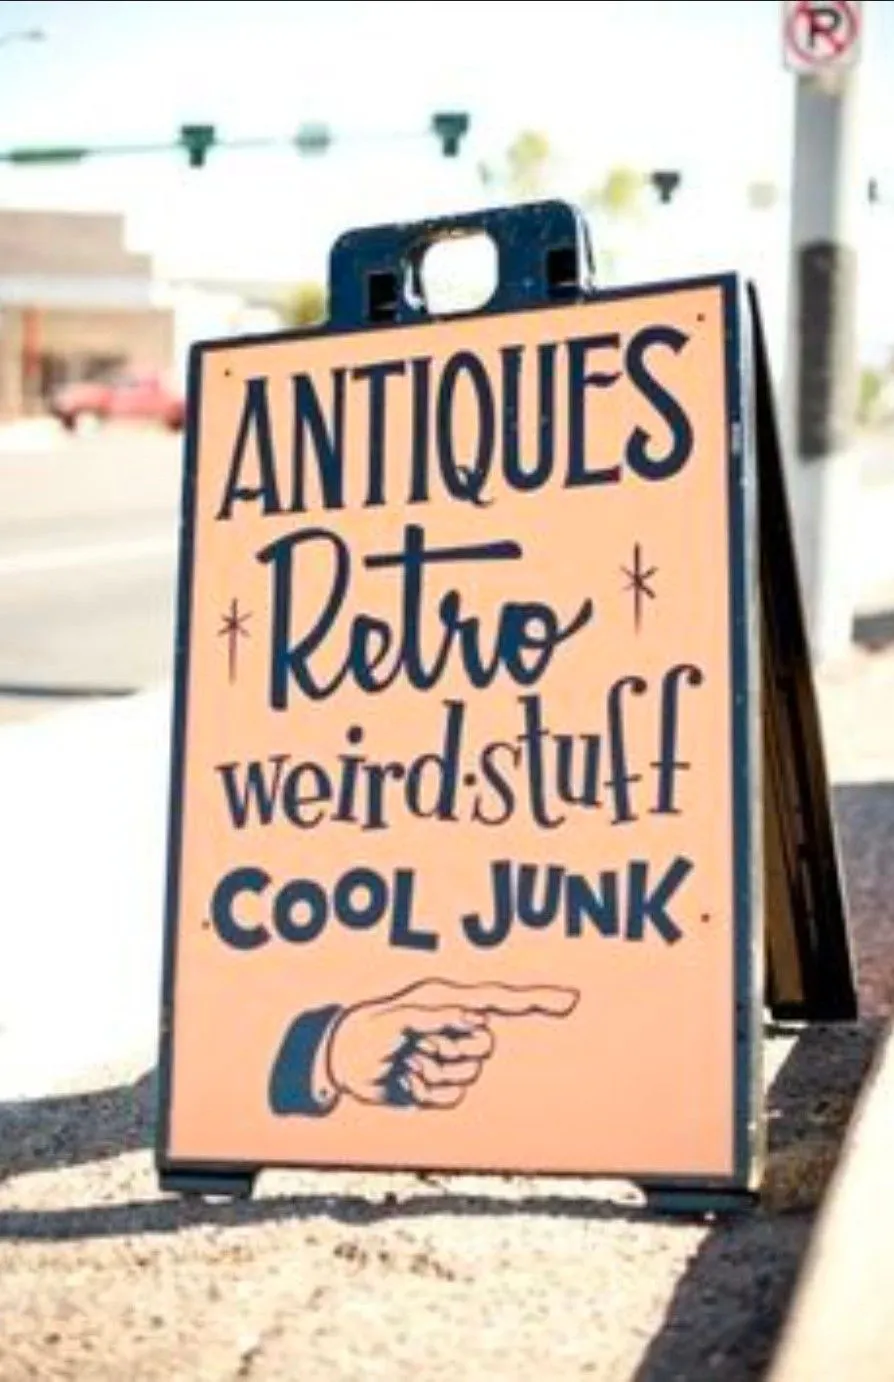 P
ANTIQUES
Retro
weird·stuff
COOL JUNK